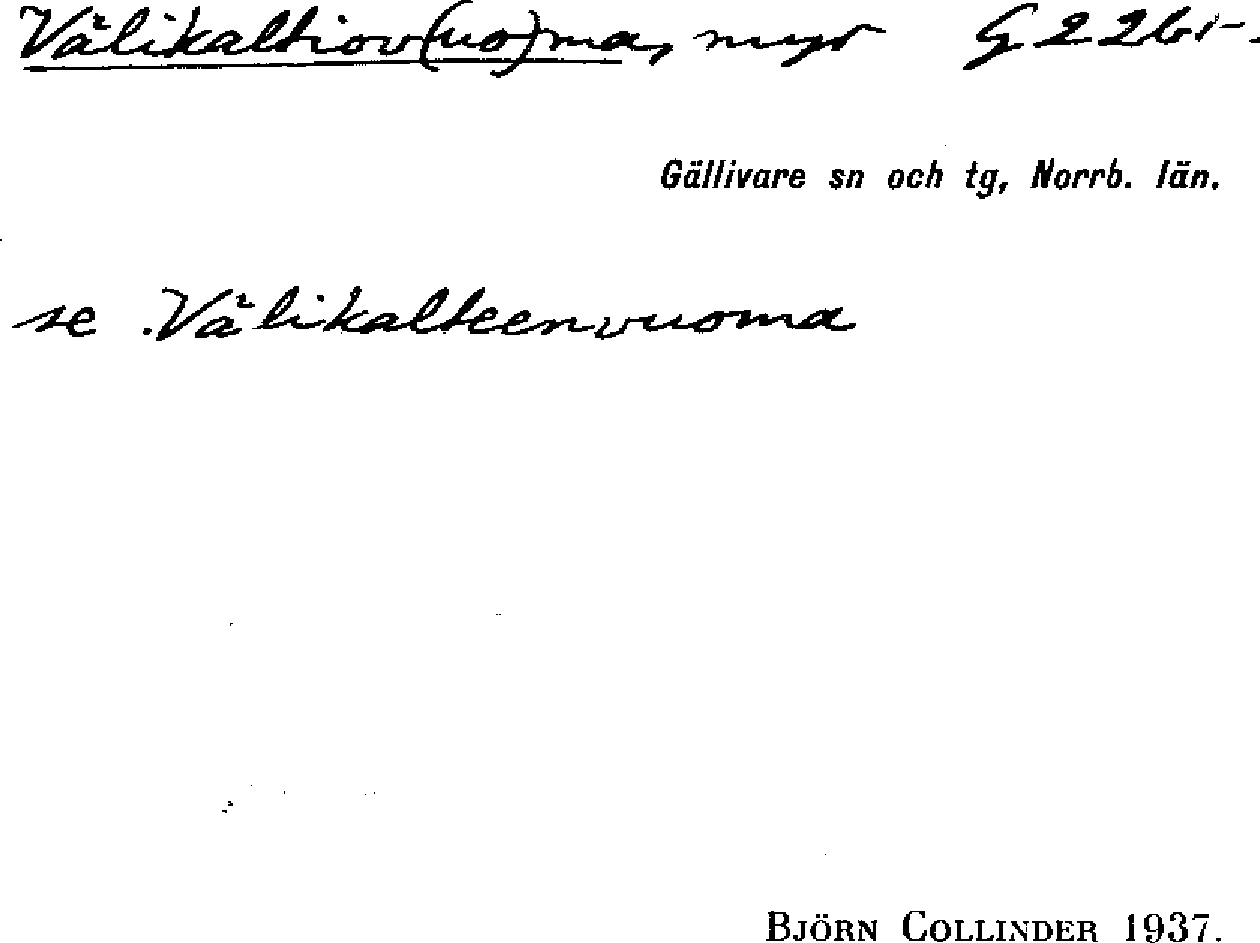 Välikaltiov(uo)ma, myr
Gällivare sn och tg, Norrb. län.
se Välikalteenvuoma
BJÖRN COLLINDER 1937.